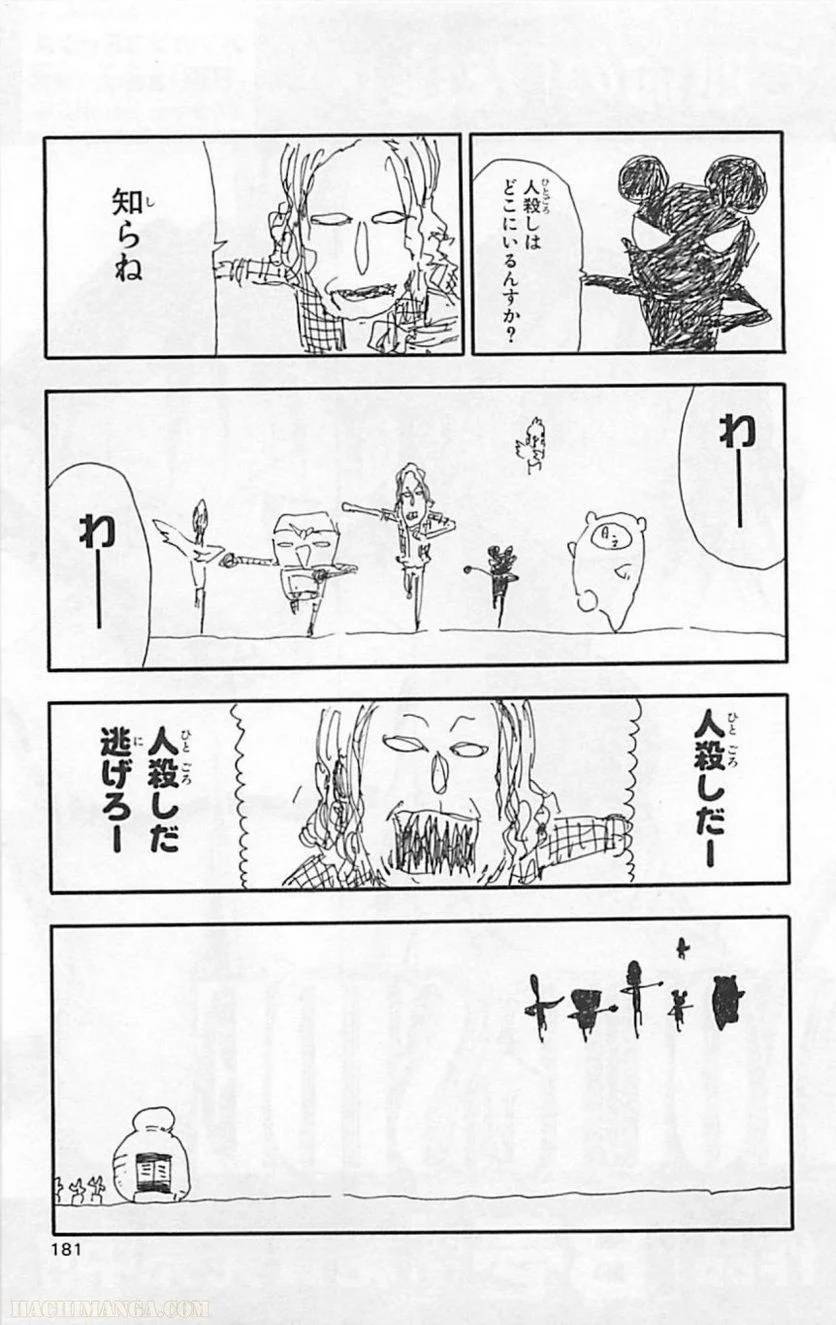 人殺しは
どこにいるんすか？
知らね
わー
わー
人殺しだー
人殺しだ
逃げろー
181
HACHIMANGA.COM